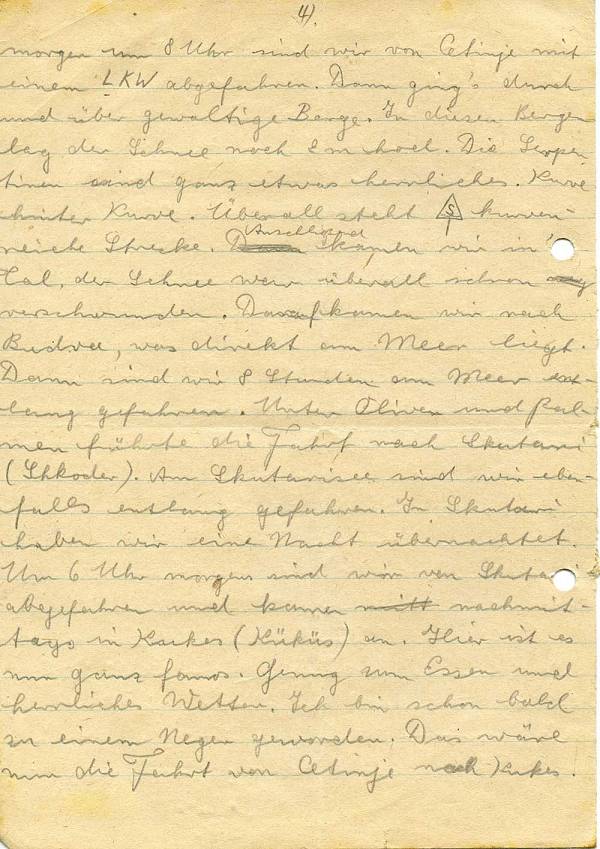 4).
morgen um 8 Uhr sind wir von Cetinje mit
einem LKW abgefahren. Dann ging's durch
und über gewaltige Berge. In diesen Bergen
lag der Schnee noch 2 m hoch. Die Serpen-
tinen sind ganz etwas herrliches. Kurve
hinter Kurve. Überall steht S kurven-
reiche Strecke. Anschließend kamen wir in's
Tal, der Schnee war überall schon
verschwunden. Darauf kamen wir nach
Budva, was direkt am Meer liegt.
Dann sind wir 8 Stunden am Meer ent-
lang gefahren. Unter Oliven und Pal-
men führte die Fahrt nach Skutari
(Shkoder). Am Skutarisee sind wir eben-
falls entlang gefahren. In Skutari
haben wir eine Nacht übernachtet.
Um 6 Uhr morgens sind wir von Skutari
abgefahren und kamen nachmit-
tags in Kukes (Küküs) an. Hier ist es
nun ganz famos. Genug zum Essen und
herrliches Wetter. Ich bin schon bald
zu einem Neger geworden. Das wäre
nun die Fahrt von Cetinje nach Kukes.